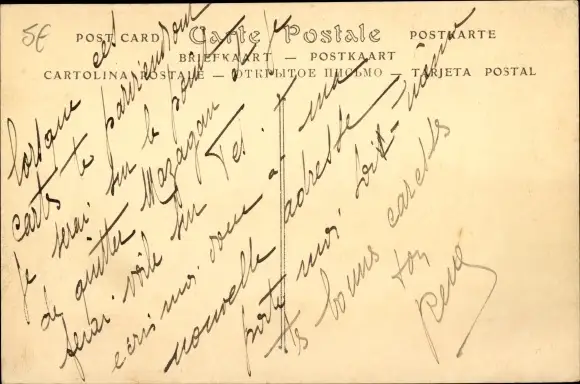 5€
POST CARD Carte Postale POSTKARTE
BRIEFKAART — POSTKAART
CARTOLINA POSTALE — ОТКРЫТОЕ ПИСЬМО — TARJETA POSTAL
Lorsque ces
carts te parviendront
je serai sur le point
de quitter Mazagan et je
ferai voile sur
ecris moi donc a ma
nouvelle adresse
porte moi
bonnes caresses
ton